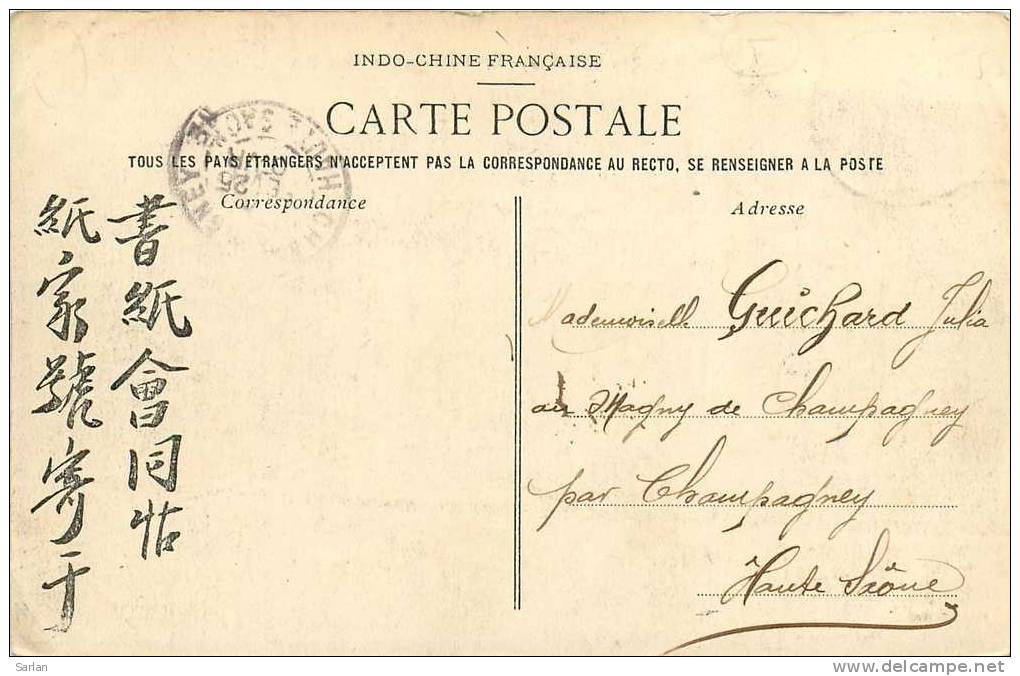 INDO-CHINE FRANÇAISE
CARTE POSTALE
TOUS LES PAYS ÉTRANGERS N'ACCEPTENT PAS LA CORRESPONDANCE AU RECTO, SE RENSEIGNER A LA POSTE
Correspondance
Adresse
書紙會同怗
紙家號寄于
Mademoiselle Guichard Julia
au Magny de Champagney
par Champagney
Haute Saône
HTE SAONE
25
Sarlan
www.delcampe.net